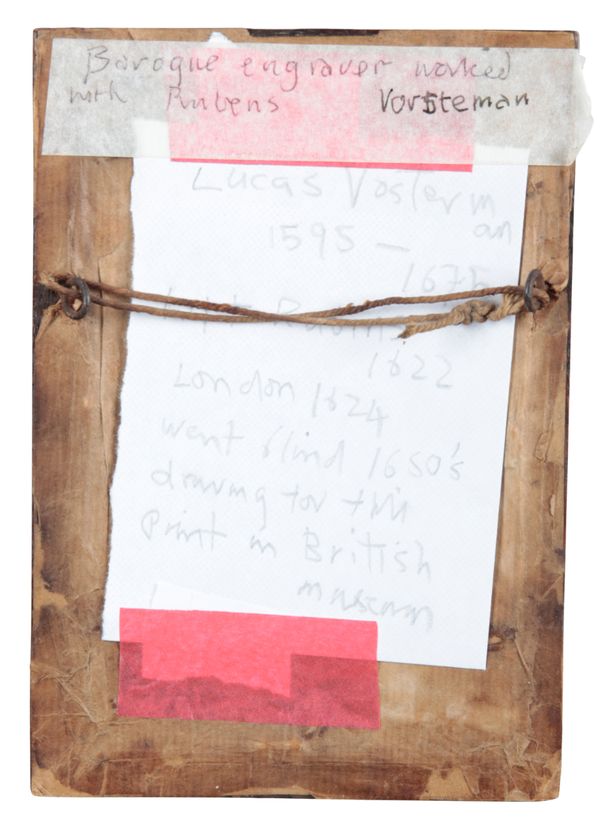 Baroque engraver worked
with Rubens Vorsteman
Lucas Vosterm
an
1595 —
1675
left Rubins
1622
London 1624
went blind 1650's
drawing for this
Print in British
museum